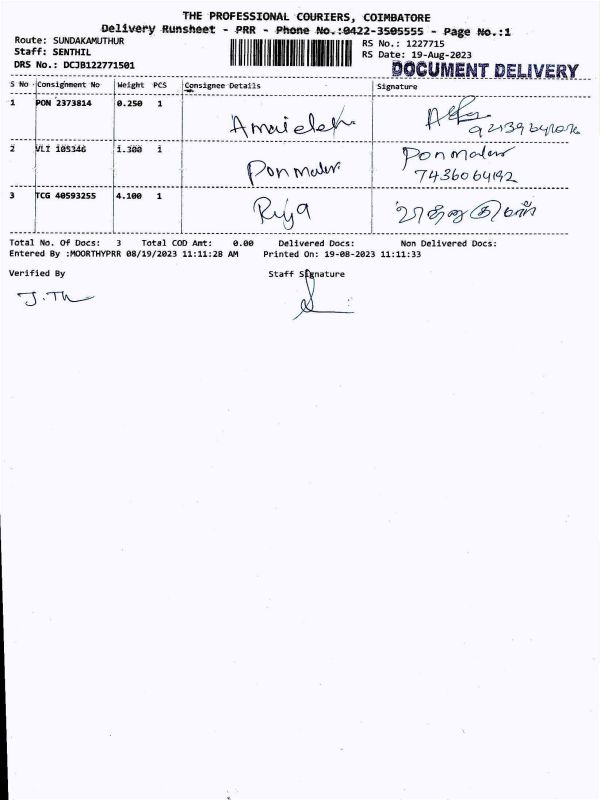 THE PROFESSIONAL COURIERS, COIMBATORE
Delivery Runsheet - PRR - Phone No.:0422-3505555 - Page No.:1
Route: SUNDAKAMUTHUR
RS No.: 1227715
Staff: SENTHIL
RS Date: 19-Aug-2023
DRS No.: DCJB122771501
DOCUMENT DELIVERY
S No Consignment No Weight PCS Consignee Details Signature
1 PON 2373814 0.250 1
2 VLI 105346 1.300 1 Ponmalar Ponmalar
7436064192
3 TCG 40593255 4.100 1 Riya
Total No. Of Docs: 3 Total COD Amt: 0.00 Delivered Docs: Non Delivered Docs:
Entered By :MOORTHYPRR 08/19/2023 11:11:28 AM Printed On: 19-08-2023 11:11:33
Verified By Staff Signature